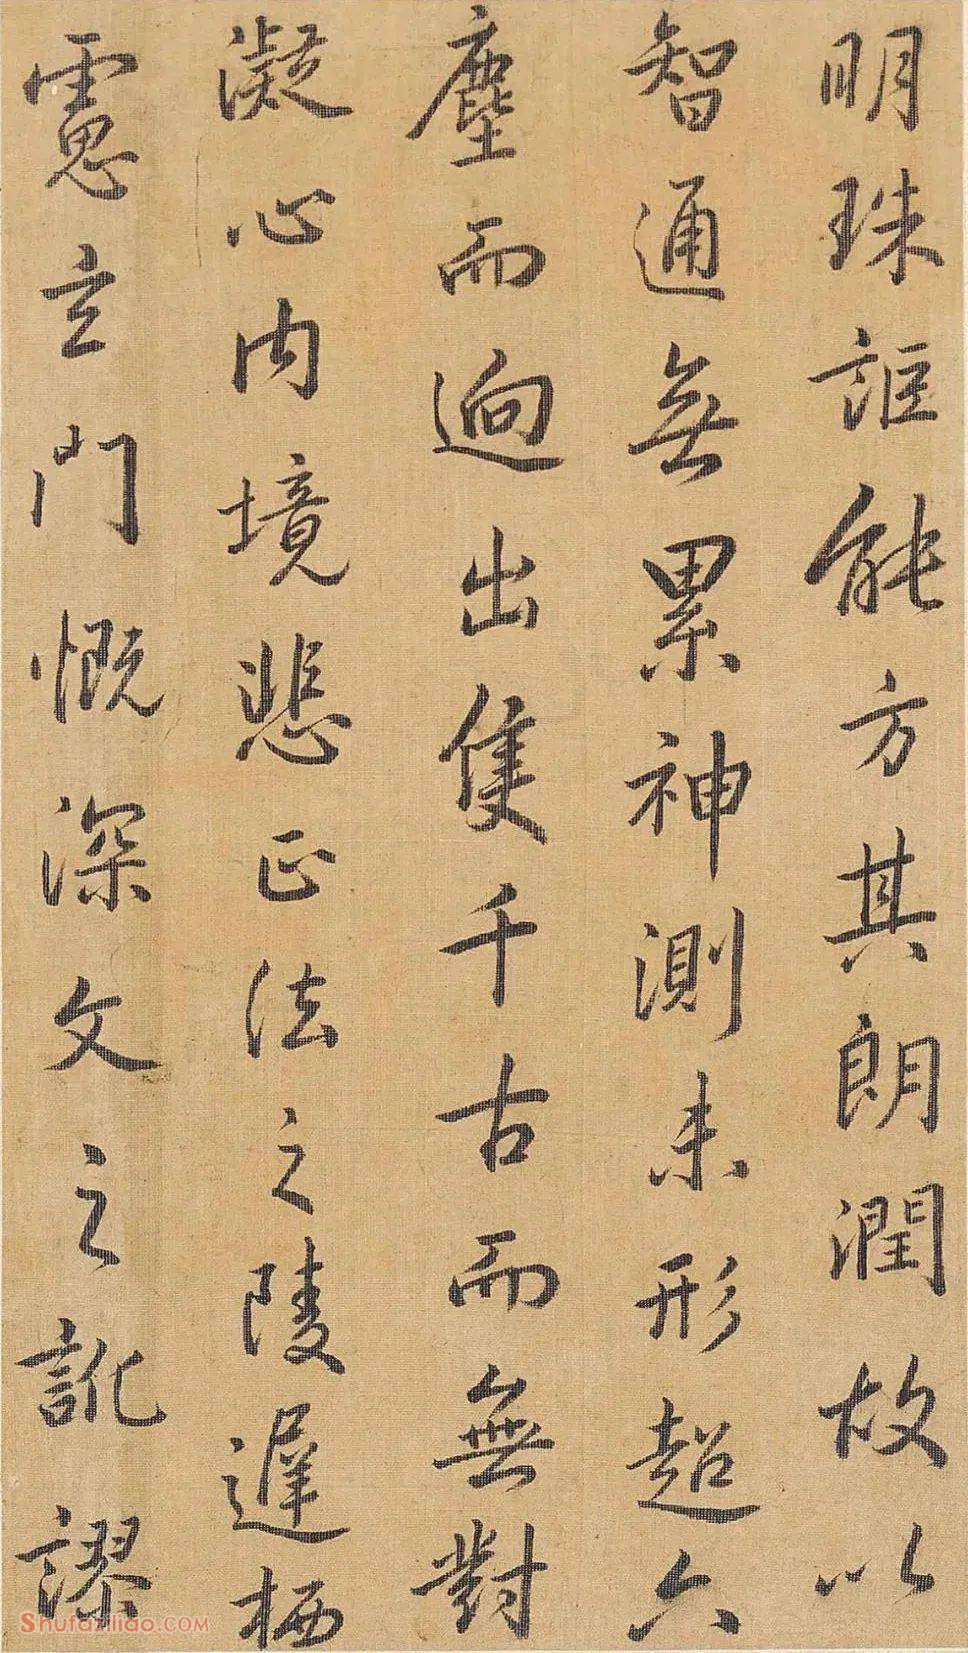 明珠詎能方其朗潤故以
智通無累神測未形超六
塵而迥出隻千古而無對
凝心內境悲正法之陵遲栖
慮玄門慨深文之訛謬
Shufaziliao.com